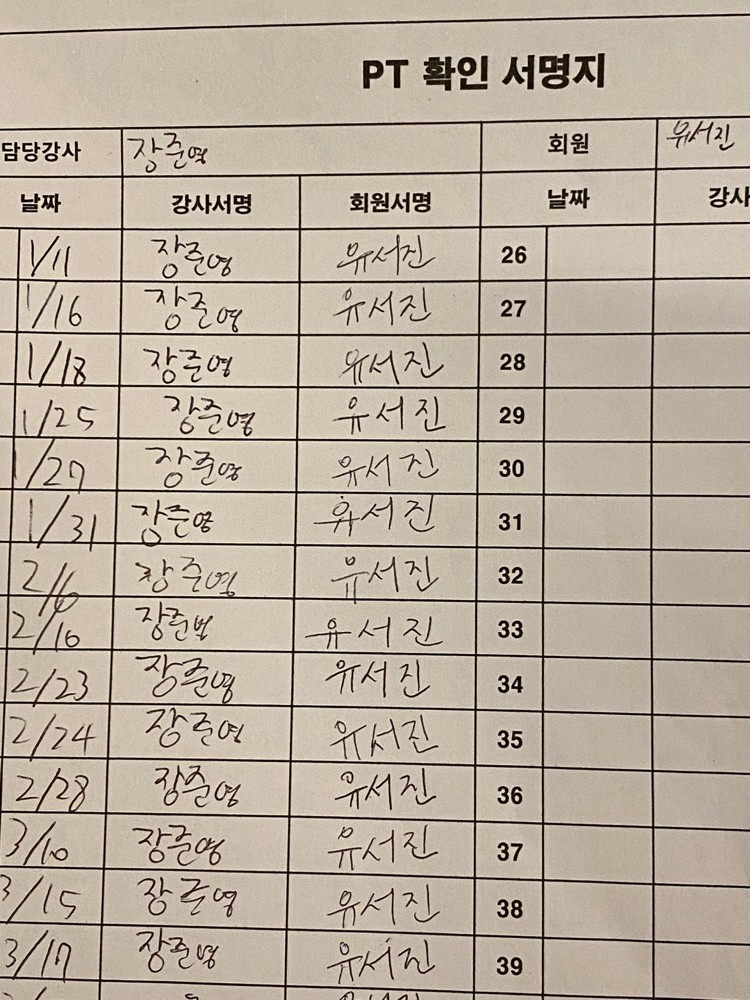 PT 확인 서명지
담당강사 장준영 회원 유서진
날짜 강사서명 회원서명 날짜 강사
1/11 장준영 유서진 26
1/16 장준영 유서진 27
1/18 장준영 유서진 28
1/25 장준영 유서진 29
1/27 장준영 유서진 30
1/31 장준영 유서진 31
2/6 장준영 유서진 32
2/16 장준영 유서진 33
2/23 장준영 유서진 34
2/24 장준영 유서진 35
2/28 장준영 유서진 36
3/10 장준영 유서진 37
3/15 장준영 유서진 38
3/17 장준영 유서진 39